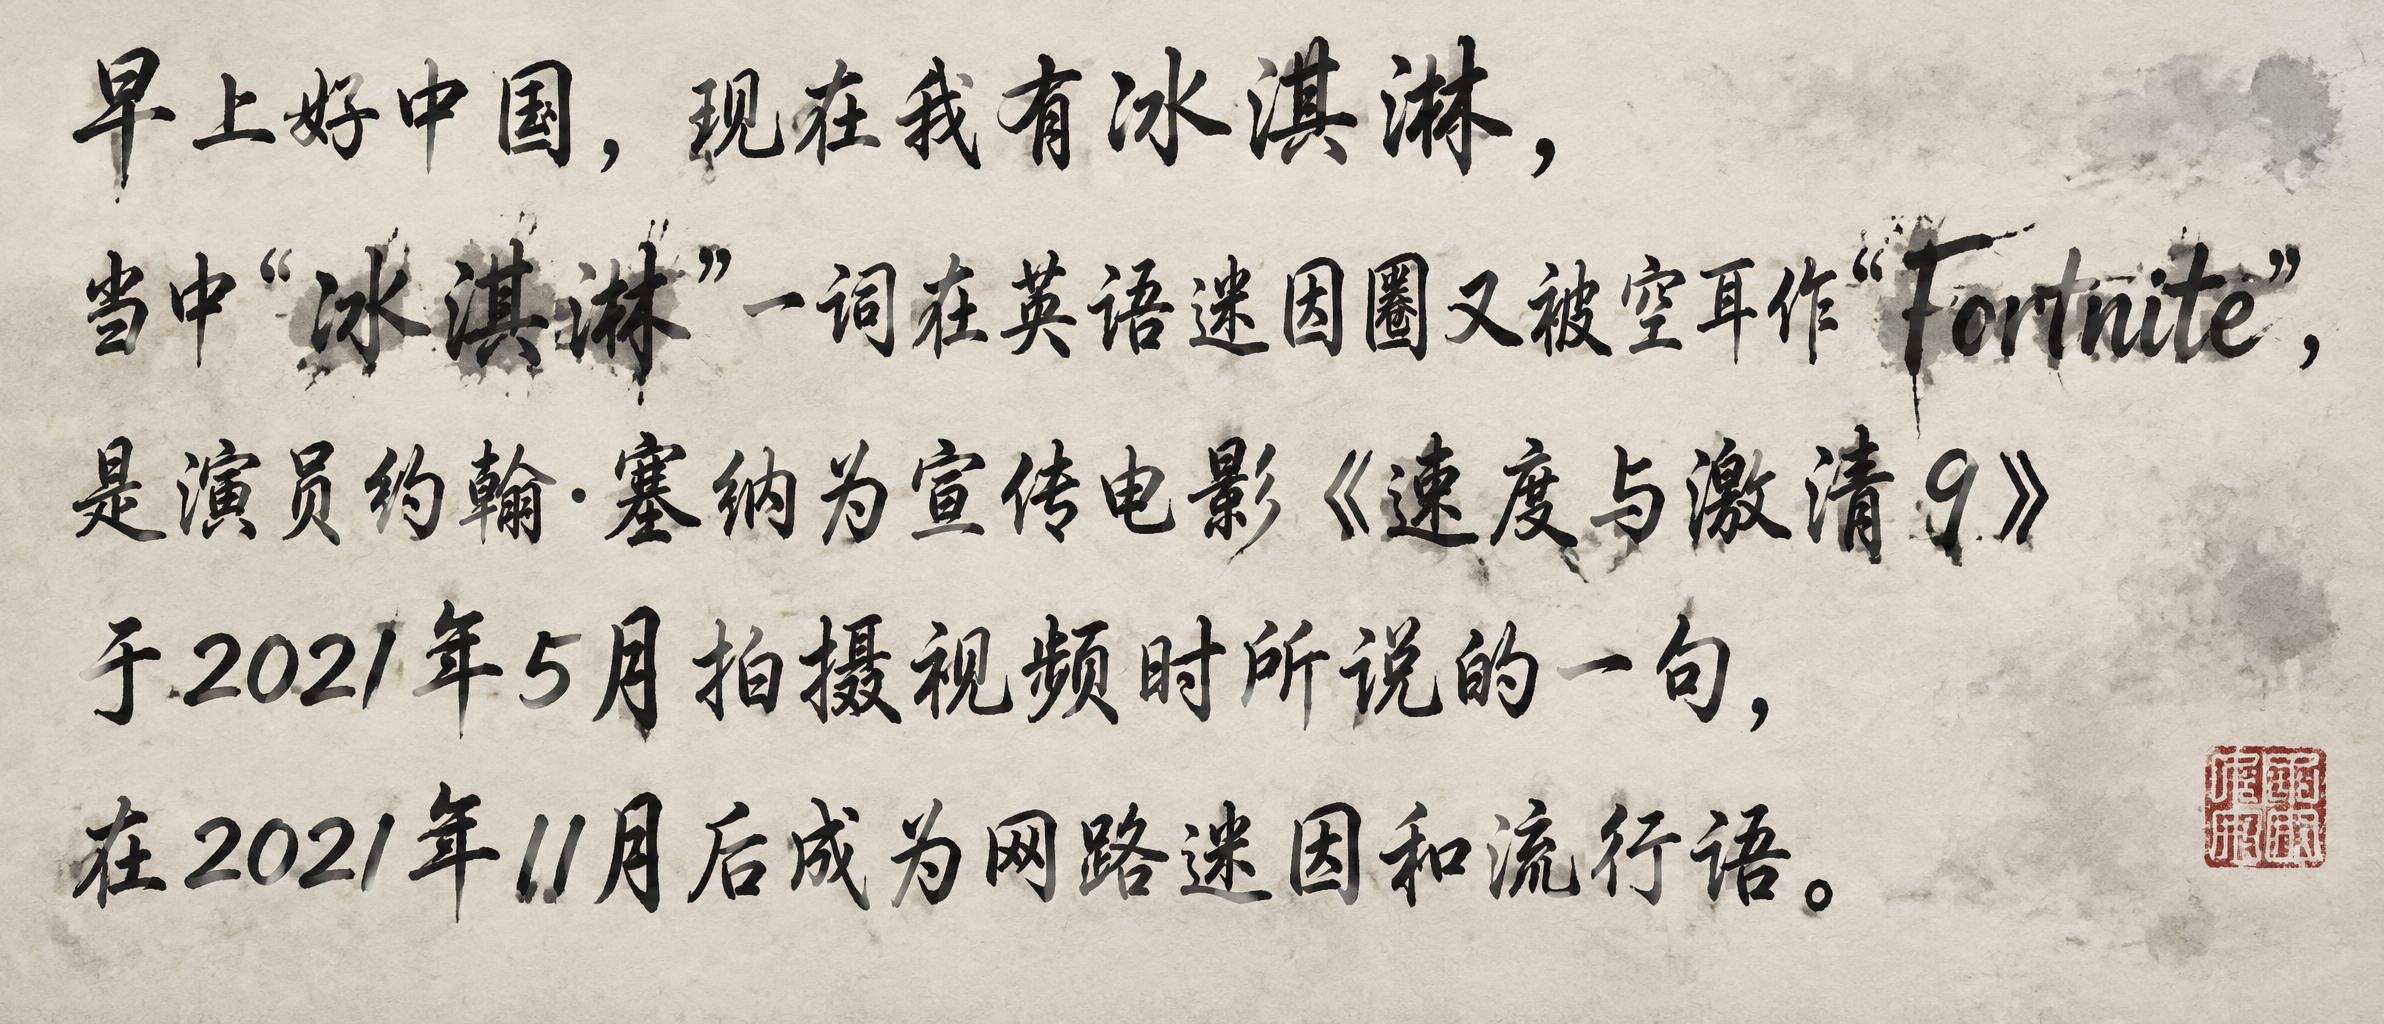 早上好中国，现在我有冰淇淋，
当中“冰淇淋”一词在英语迷因圈又被空耳作“Fortnite”，
是演员约翰·塞纳为宣传电影《速度与激清9》
于2021年5月拍摄视频时所说的一句，
在2021年11月后成为网路迷因和流行语。